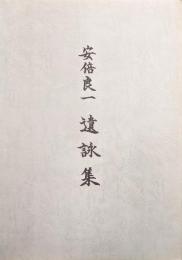 安倍良一 遺詠集